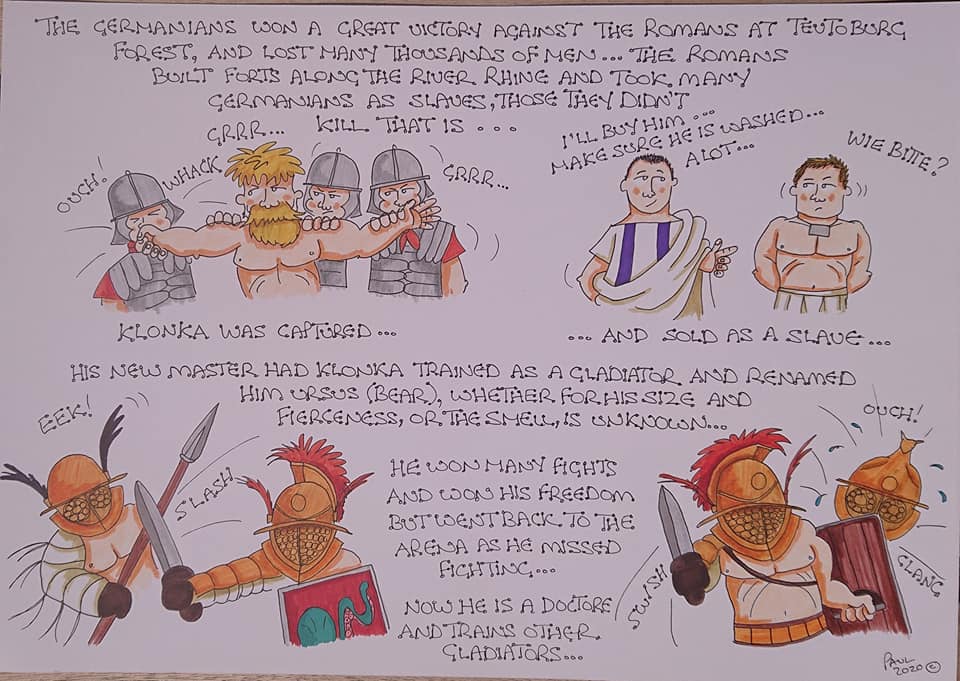 THE GERMANIANS WON A GREAT VICTORY AGAINST THE ROMANS AT TEUTOBURG
FOREST, AND LOST MANY THOUSANDS OF MEN... THE ROMANS
BUILT FORTS ALONG THE RIVER RHINE AND TOOK MANY
GERMANIANS AS SLAVES, THOSE THEY DIDN'T
KILL THAT IS...
OUCH!
WHACK
GRRR...
GRRR...
I'LL BUY HIM...
MAKE SURE HE IS WASHED...
A LOT...
WIE BITTE?
KLONKA WAS CAPTURED...
... AND SOLD AS A SLAVE...
HIS NEW MASTER HAD KLONKA TRAINED AS A GLADIATOR AND RENAMED
HIM URSUS (BEAR), WHETHER FOR HIS SIZE AND
FIERCENESS, OR THE SMELL, IS UNKNOWN...
EEK!
SLASH
HE WON MANY FIGHTS
AND WON HIS FREEDOM
BUT WENT BACK TO THE
ARENA AS HE MISSED
FIGHTING...
NOW HE IS A DOCTORE
AND TRAINS OTHER
GLADIATORS...
SWISH
OUCH!
CLANG
PAUL
2020 ©